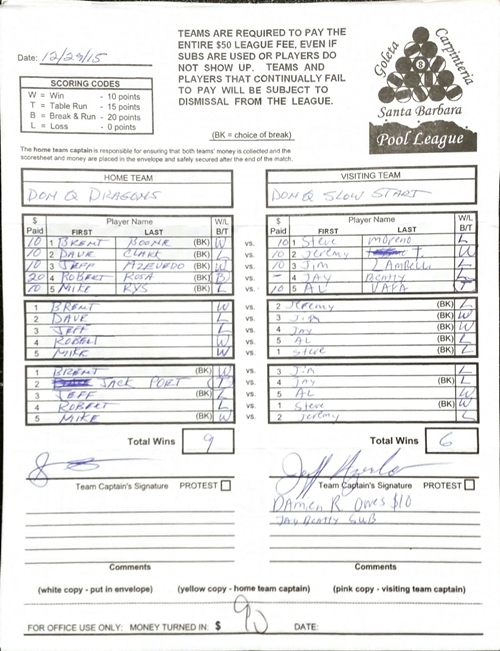 TEAMS ARE REQUIRED TO PAY THE
ENTIRE $50 LEAGUE FEE, EVEN IF
SUBS ARE USED OR PLAYERS DO
NOT SHOW UP. TEAMS AND
PLAYERS THAT CONTINUALLY FAIL
TO PAY WILL BE SUBJECT TO
DISMISSAL FROM THE LEAGUE.
Date: 12/29/15
Goleta Carpinteria
Santa Barbara
Pool League
SCORING CODES
W = Win - 10 points
T = Table Run - 15 points
B = Break & Run - 20 points
L = Loss - 0 points
(BK = choice of break)
The home team captain is responsible for ensuring that both teams' money is collected and the
scoresheet and money are placed in the envelope and safely secured after the end of the match.
HOME TEAM VISITING TEAM
DON Q DRAGONS DON Q SLOW START
$ Paid Player Name FIRST LAST W/L B/T $ Paid Player Name FIRST LAST W/L B/T
10 1 BRENT BOONE (BK) W vs. 10 1 Steve Moreno L
10 2 DAVE CLARK (BK) L vs. 10 2 Jeremy T. W
10 3 JEFF AZEVEDO (BK) W vs. 10 3 Jim ZAMBELLI L
20 4 ROBERT ROSA (BK) B vs. 4 JAY BEATTY L
10 5 MIKE RYS (BK) L vs. 10 5 AL VAFA T
1 BRENT W vs. 2 Jeremy (BK) L
2 DAVE L vs. 3 Jim (BK) W
3 JEFF L vs. 4 JAY (BK) W
4 ROBERT W vs. 5 AL (BK) L
5 MIKE W vs. 1 Steve (BK) L
1 BRENT (BK) W vs. 3 Jim L
2 JACK PORT (BK) T vs. 4 JAY L
3 JEFF (BK) L vs. 5 AL W
4 ROBERT (BK) L vs. 1 Steve W
5 MIKE (BK) W vs. 2 Jeremy L
Total Wins 9 Total Wins 6
Team Captain's Signature PROTEST Team Captain's Signature PROTEST
DAMIEN R. OWES $10
JAY BEATTY SUB
Comments Comments
(white copy - put in envelope) (yellow copy - home team captain) (pink copy - visiting team captain)
FOR OFFICE USE ONLY: MONEY TURNED IN: $ 90 DATE: